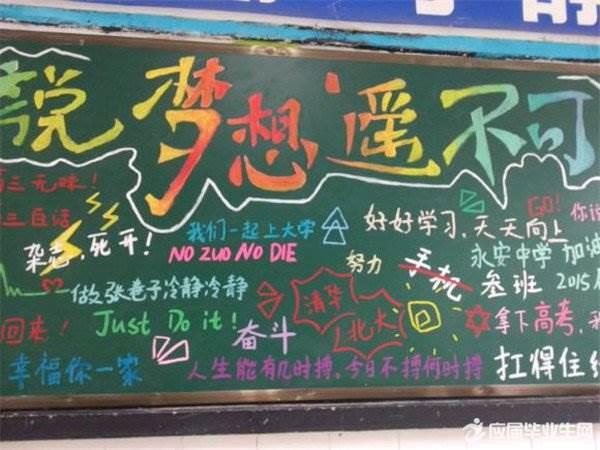 说梦想遥不可
高三无味！
杂志，死开！
我们一起上大学
NO ZUO NO DIE
好好学习，天天向上
GO!
你说
努力
手机
永安中学 加油
叁班 2015
一做张卷子冷静冷静
清华
北大
回来！
Just Do it!
奋斗
拿下高考，
幸福你一家
人生能有几时搏，今日不搏何时搏
扛得住
应届毕业生网